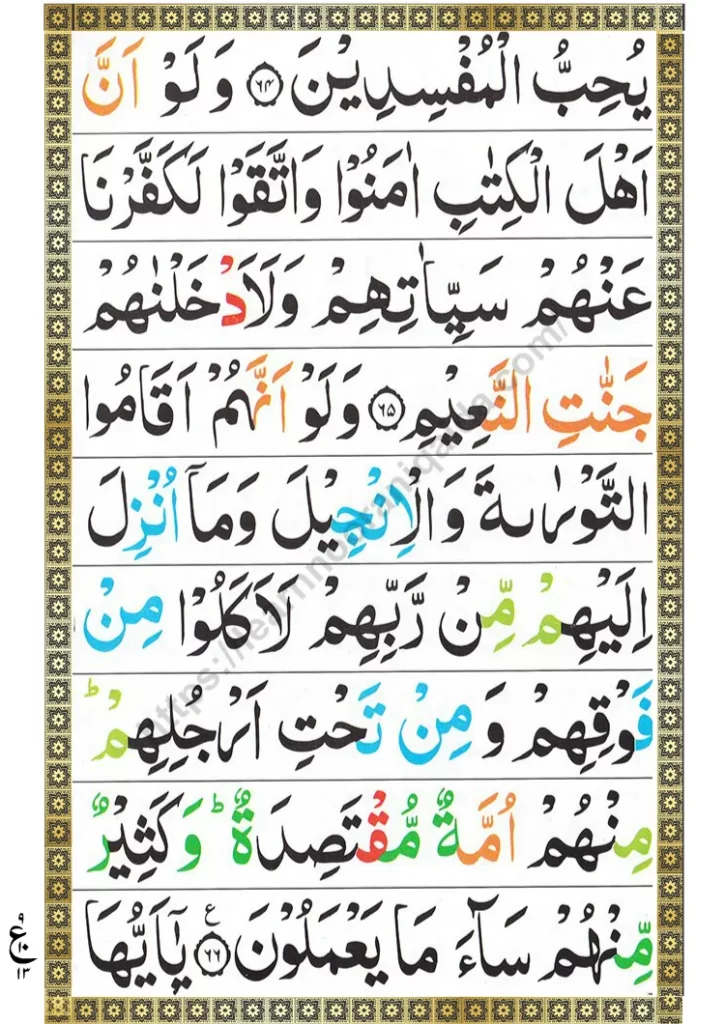 يُحِبُّ الْمُفْسِدِيْنَ ۝۶۴ وَلَوْ اَنَّ
اَهْلَ الْكِتٰبِ اٰمَنُوْا وَاتَّقَوْا لَكَفَّرْنَا
عَنْهُمْ سَيِّاٰتِهِمْ وَلَاَدْخَلْنٰهُمْ
جَنّٰتِ النَّعِيْمِ ۝۶۵ وَلَوْ اَنَّهُمْ اَقَامُوا
التَّوْرٰىةَ وَالْاِنْجِيْلَ وَمَاۤ اُنْزِلَ
اِلَيْهِمْ مِّنْ رَّبِّهِمْ لَاَكَلُوْا مِنْ
فَوْقِهِمْ وَمِنْ تَحْتِ اَرْجُلِهِمْ ؕ
مِنْهُمْ اُمَّةٌ مُّقْتَصِدَةٌ ؕ وَكَثِيْرٌ
مِّنْهُمْ سَآءَ مَا يَعْمَلُوْنَ ۝۶۶ ع يٰۤاَيُّهَا
ع ۱۳
https://learnnooraniqaida.com/